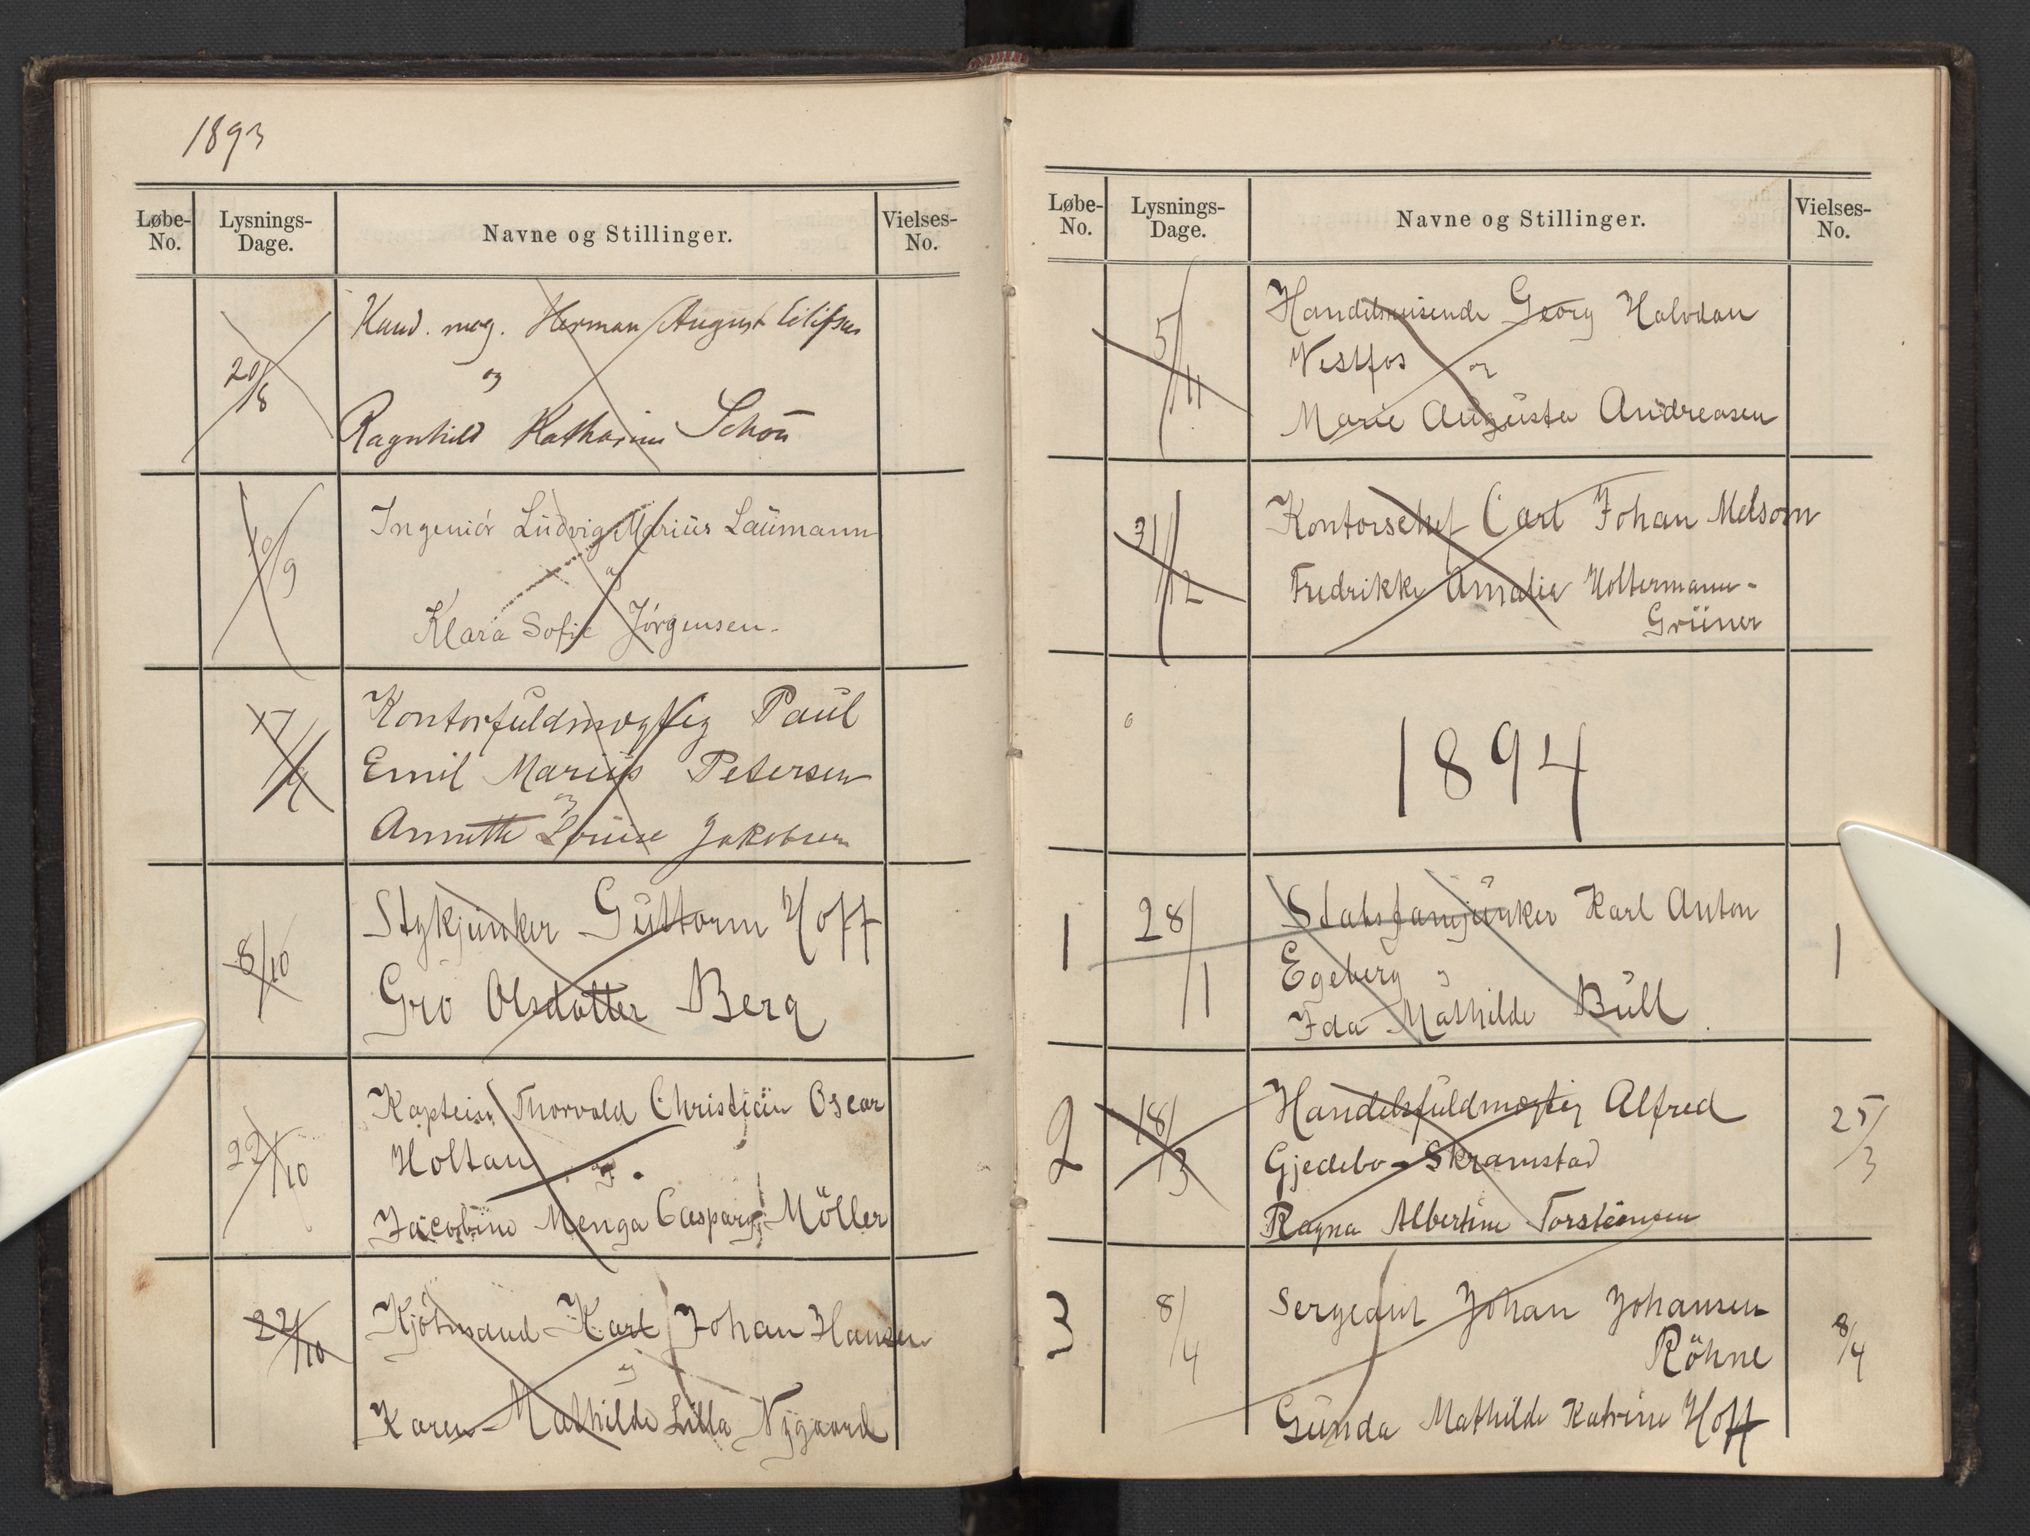 1893
Løbe-No. Lysnings-Dage. Navne og Stillinger. Vielses-No.
20/8 Kand. mag. Herman August Eilifsen
og
Ragnhild Katharina Schou
10/9 Ingeniör Ludvig Marius Laumann
og
Klara Sofie Jörgensen.
17/9 Kontorfuldmægtig Paul
Emil Marius Petersen
og
Annette Louise Jakobsen
8/10 Stykjunker Guttorm Hoff
Gro Olsdatter Berg
22/10 Kaptein Thorvald Christian Oscar
Holtan og
Jacobine Menga Caspary Möller
22/10 Kjöbmand Karl Johan Hansen
og
Karen Mathilde Lilla Nygaard
Løbe-No. Lysnings-Dage. Navne og Stillinger. Vielses-No.
5/11 Handelsreisende Georg Halvdan
Vestfos og
Marie Augusta Andreasen
31/12 Kontorschef Carl Johan Melsom
Fredrikke Amalie Holtermann-
Grüner
1894
1 28/1 Statsfanejunker Karl Anton 1
Egeberg og
Ida Mathilde Bull
2 18/3 Handelsfuldmægtig Alfred 25/3
Gjedebo-Skramstad
Ragna Albertine Torstensen
3 8/4 Sergeant Johan Johansen 8/4
Röhne
Gunda Mathilde Katrine Hoff